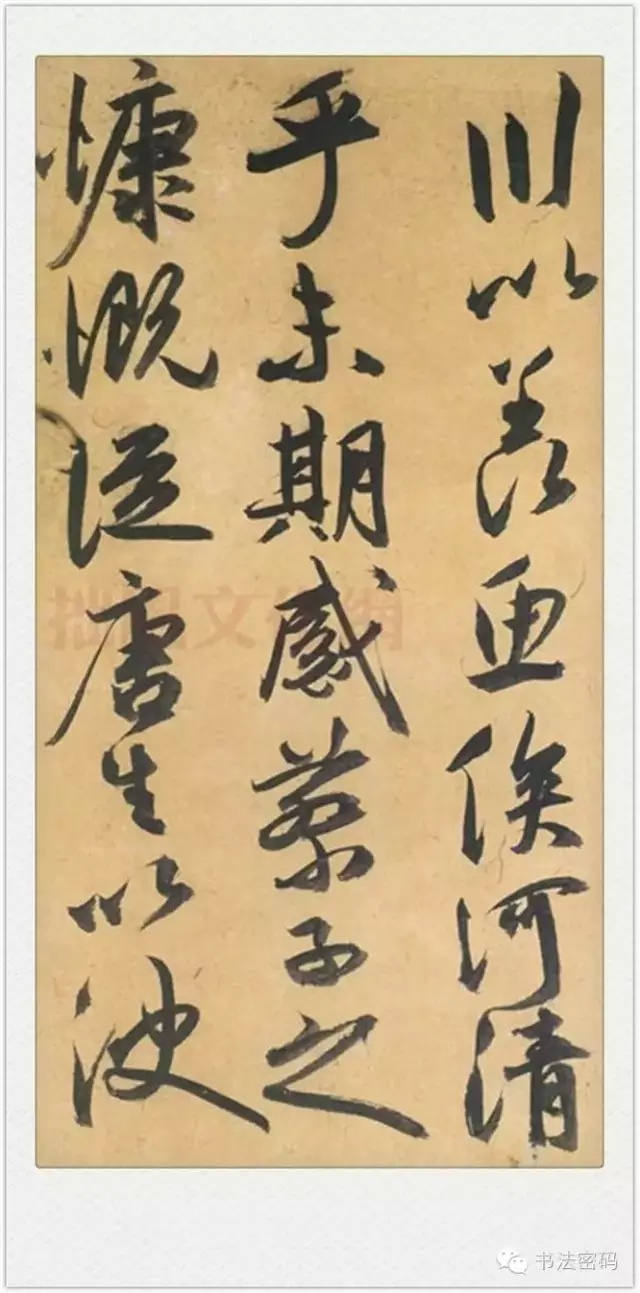 川以羡魚俟河清
乎未期感蔡子之
慷慨從唐生以決
书法密码